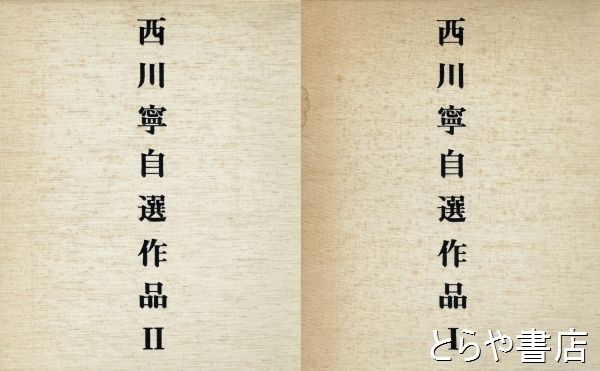 西川寧自選作品II
西川寧自選作品I
とらや書店